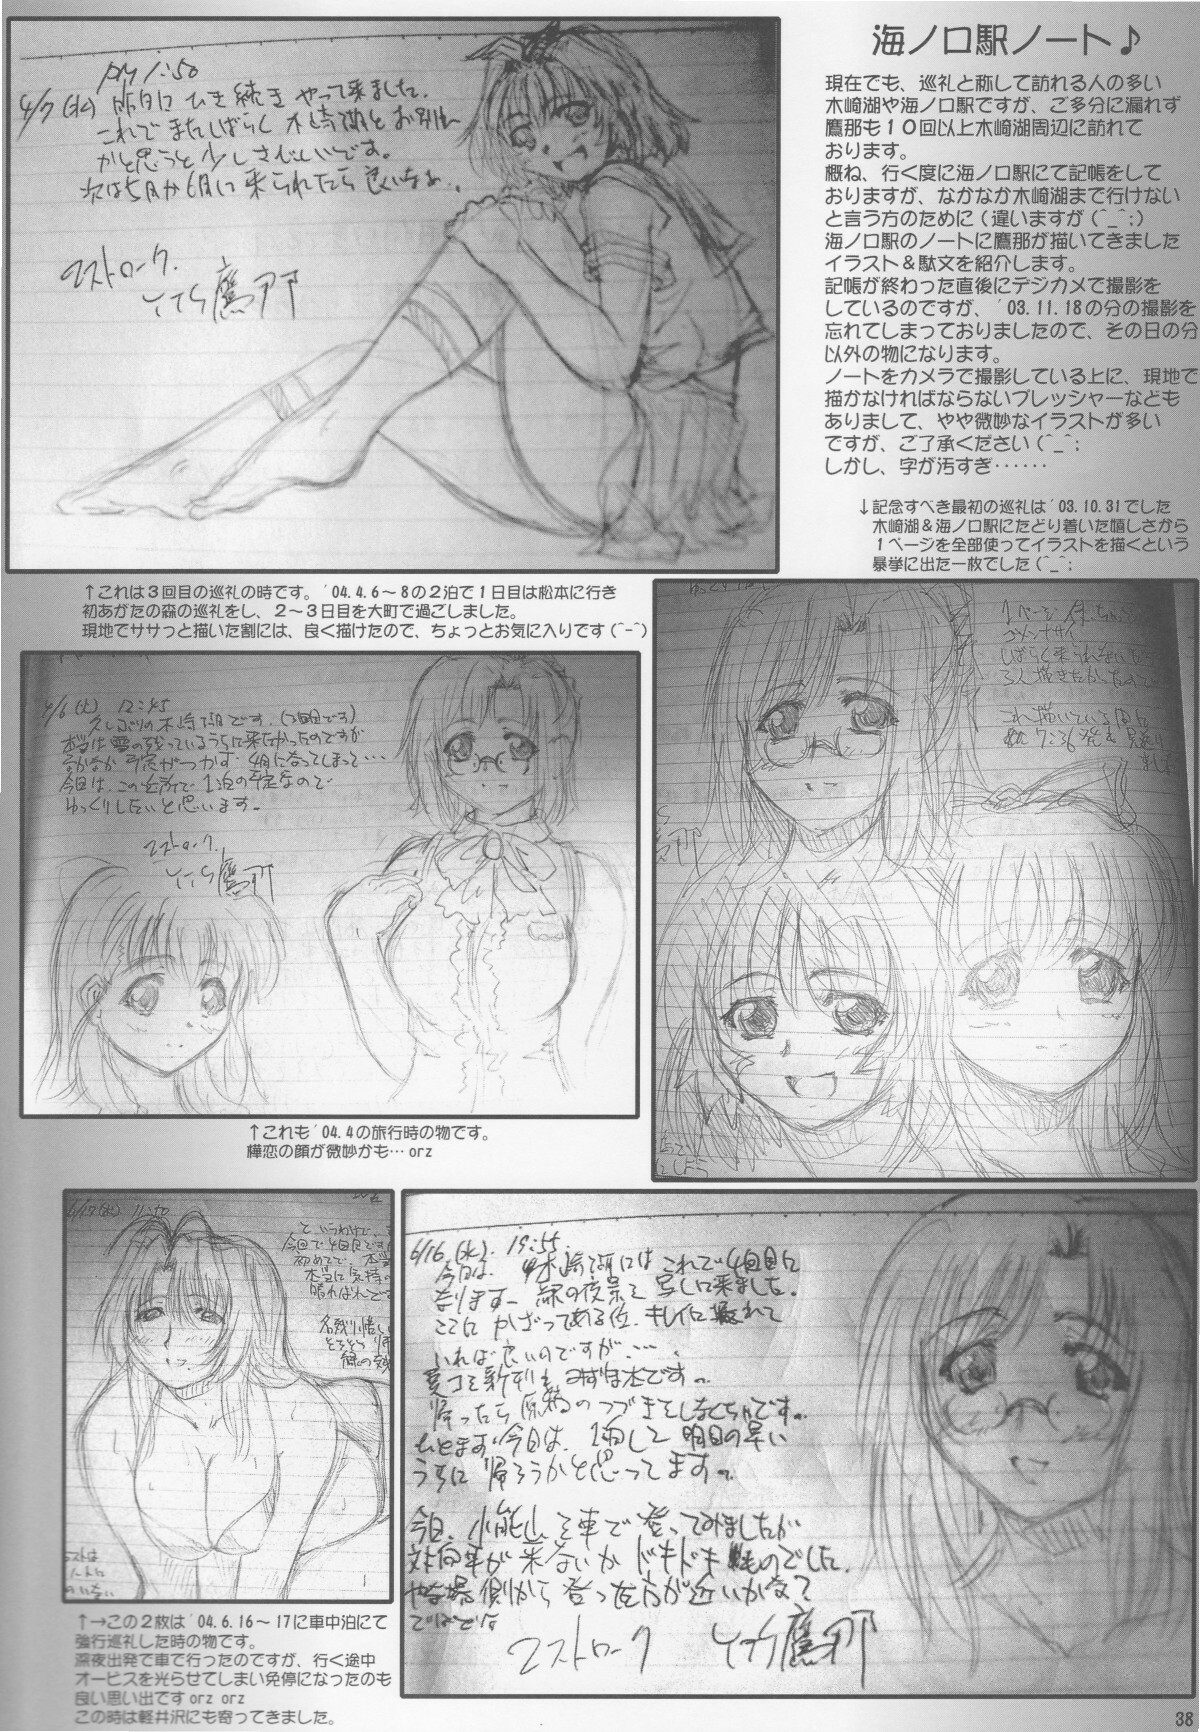 海ノ口駅ノート♪
現在でも、巡礼と称して訪れる人の多い
木崎湖や海ノ口駅ですが、ご多分に漏れず
鷹那も１０回以上木崎湖周辺に訪れて
おります。
概ね、行く度に海ノ口駅にて記帳をして
おりますが、なかなか木崎湖まで行けない
と言う方のために(違いますが(^_^;)
海ノ口駅のノートに鷹那が描いてきました
イラスト＆駄文を紹介します。
記帳が終わった直後にデジカメで撮影を
しているのですが、'03.11.18の分の撮影を
忘れてしまっておりましたので、その日の分
以外の物になります。
ノートをカメラで撮影している上に、現地で
描かなければならないプレッシャーなども
ありまして、やや微妙なイラストが多い
ですが、ご了承ください(^_^;
しかし、字が汚すぎ……
PM 1:50
4/7(水) 昨日にひき続きやって来ました。
これでまたしばらく木崎湖とお別れ
かと思うと少しさびしいです。
次は5月か6月に来られたら良いなぁ..
2ストローク.
鷹那
↑これは３回目の巡礼の時です。'04.4.6～8の２泊で１日目は松本に行き
初あがたの森の巡礼をし、２～３日目を大町で過ごしました。
現地でササっと描いた割には、良く描けたので、ちょっとお気に入りです(^-^)
↓記念すべき最初の巡礼は'03.10.31でした
木崎湖＆海ノ口駅にたどり着いた嬉しさから
１ページを全部使ってイラストを描くという
暴挙に出た一枚でした(^_^;
4/6(火) 12:45
久しぶりの木崎湖です。(3回目です)
本当は雪の残っているうちに来たかったのですが
なかなか予定がつかず、4月になってしまって…
今日は、この近所で1泊の予定なので
ゆっくりしたいと思います。
2ストローク.
鷹那
1ページ
ゴメンナサイ
しばらく来られない
3人描きたかったので
これ描いている間に
7:36発を見送り
ました
↑これも'04.4の旅行時の物です。
樺恋の顔が微妙かも…orz
6/17(木) 11:50
というわけで、
今回で4回目です
初めてで
本当に気持
晴ればれで
名残り惜し
そろそろ帰
6/16.(水). 19:55.
今日は、木崎湖にはこれで4回目に
なります。緑の夜景を写しに来ました。
ここにかざってある位、キレイに撮れて
いれば良いのですが….
夏コミ新刊もみずほ本です。
帰ったら原稿のつづきをしなくちゃです。
ひとまず今日は、1泊して明日の早い
うちに帰ろうかと思ってます。
今日、小熊山を車で登ってみましたが
対向車が来ないかドキドキものでした。
やな場側から登った方が近いかな？
ではでは
2ストローク 鷹那
↑→この２枚は'04.6.16～17に車中泊にて
強行巡礼した時の物です。
深夜出発で車で行ったのですが、行く途中
オービスを光らせてしまい免停になったのも
良い思い出ですorz orz
この時は軽井沢にも寄ってきました。
38